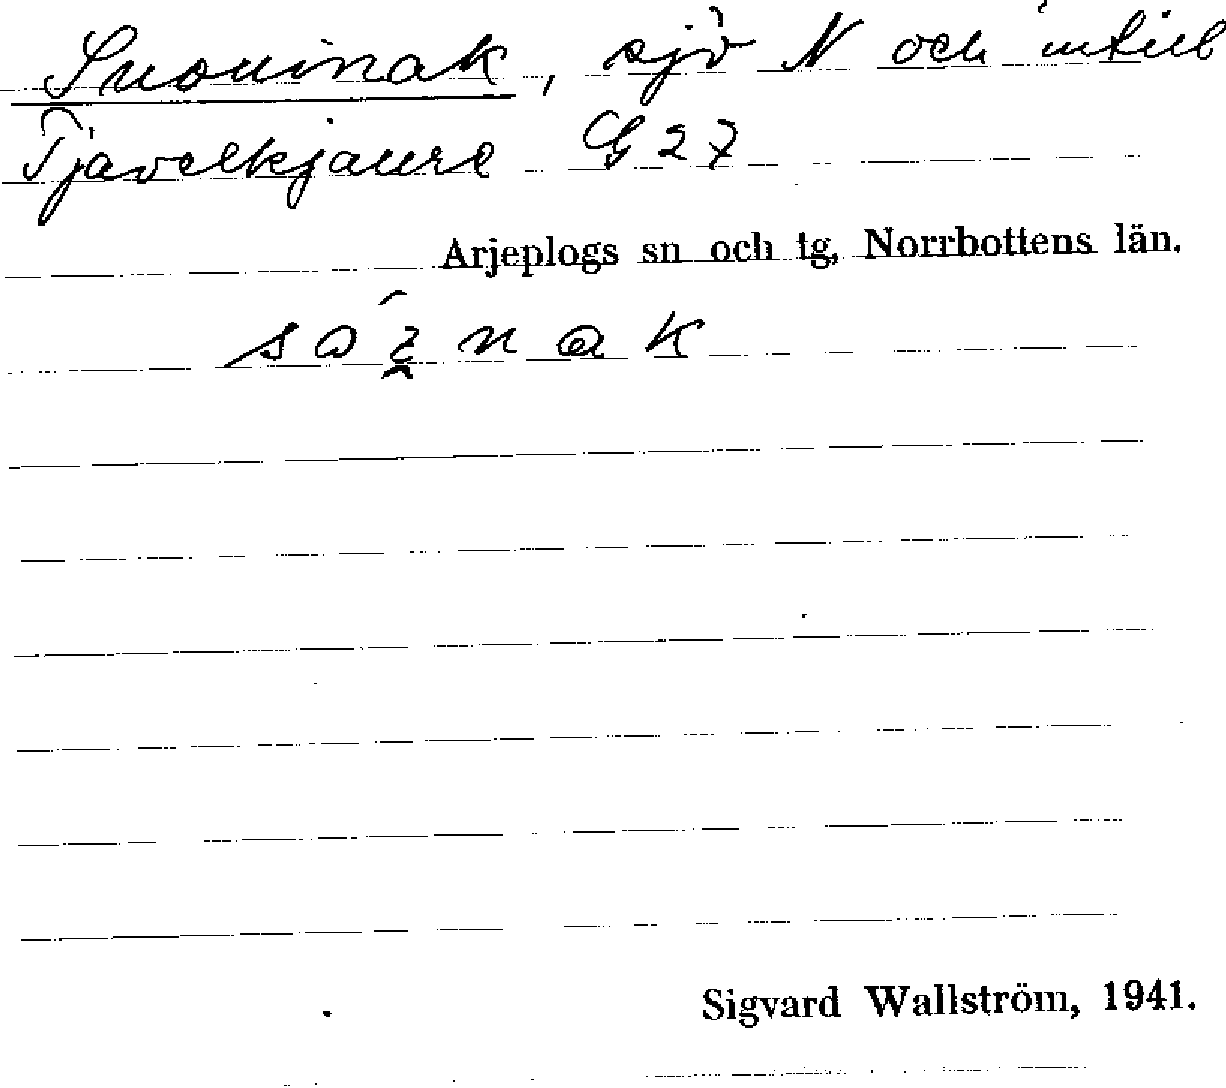 Snouinak, sjö N och intill
Tjavelkjaure G 27
Arjeplogs sn och tg, Norrbottens län.
Sigvard Wallström, 1941.